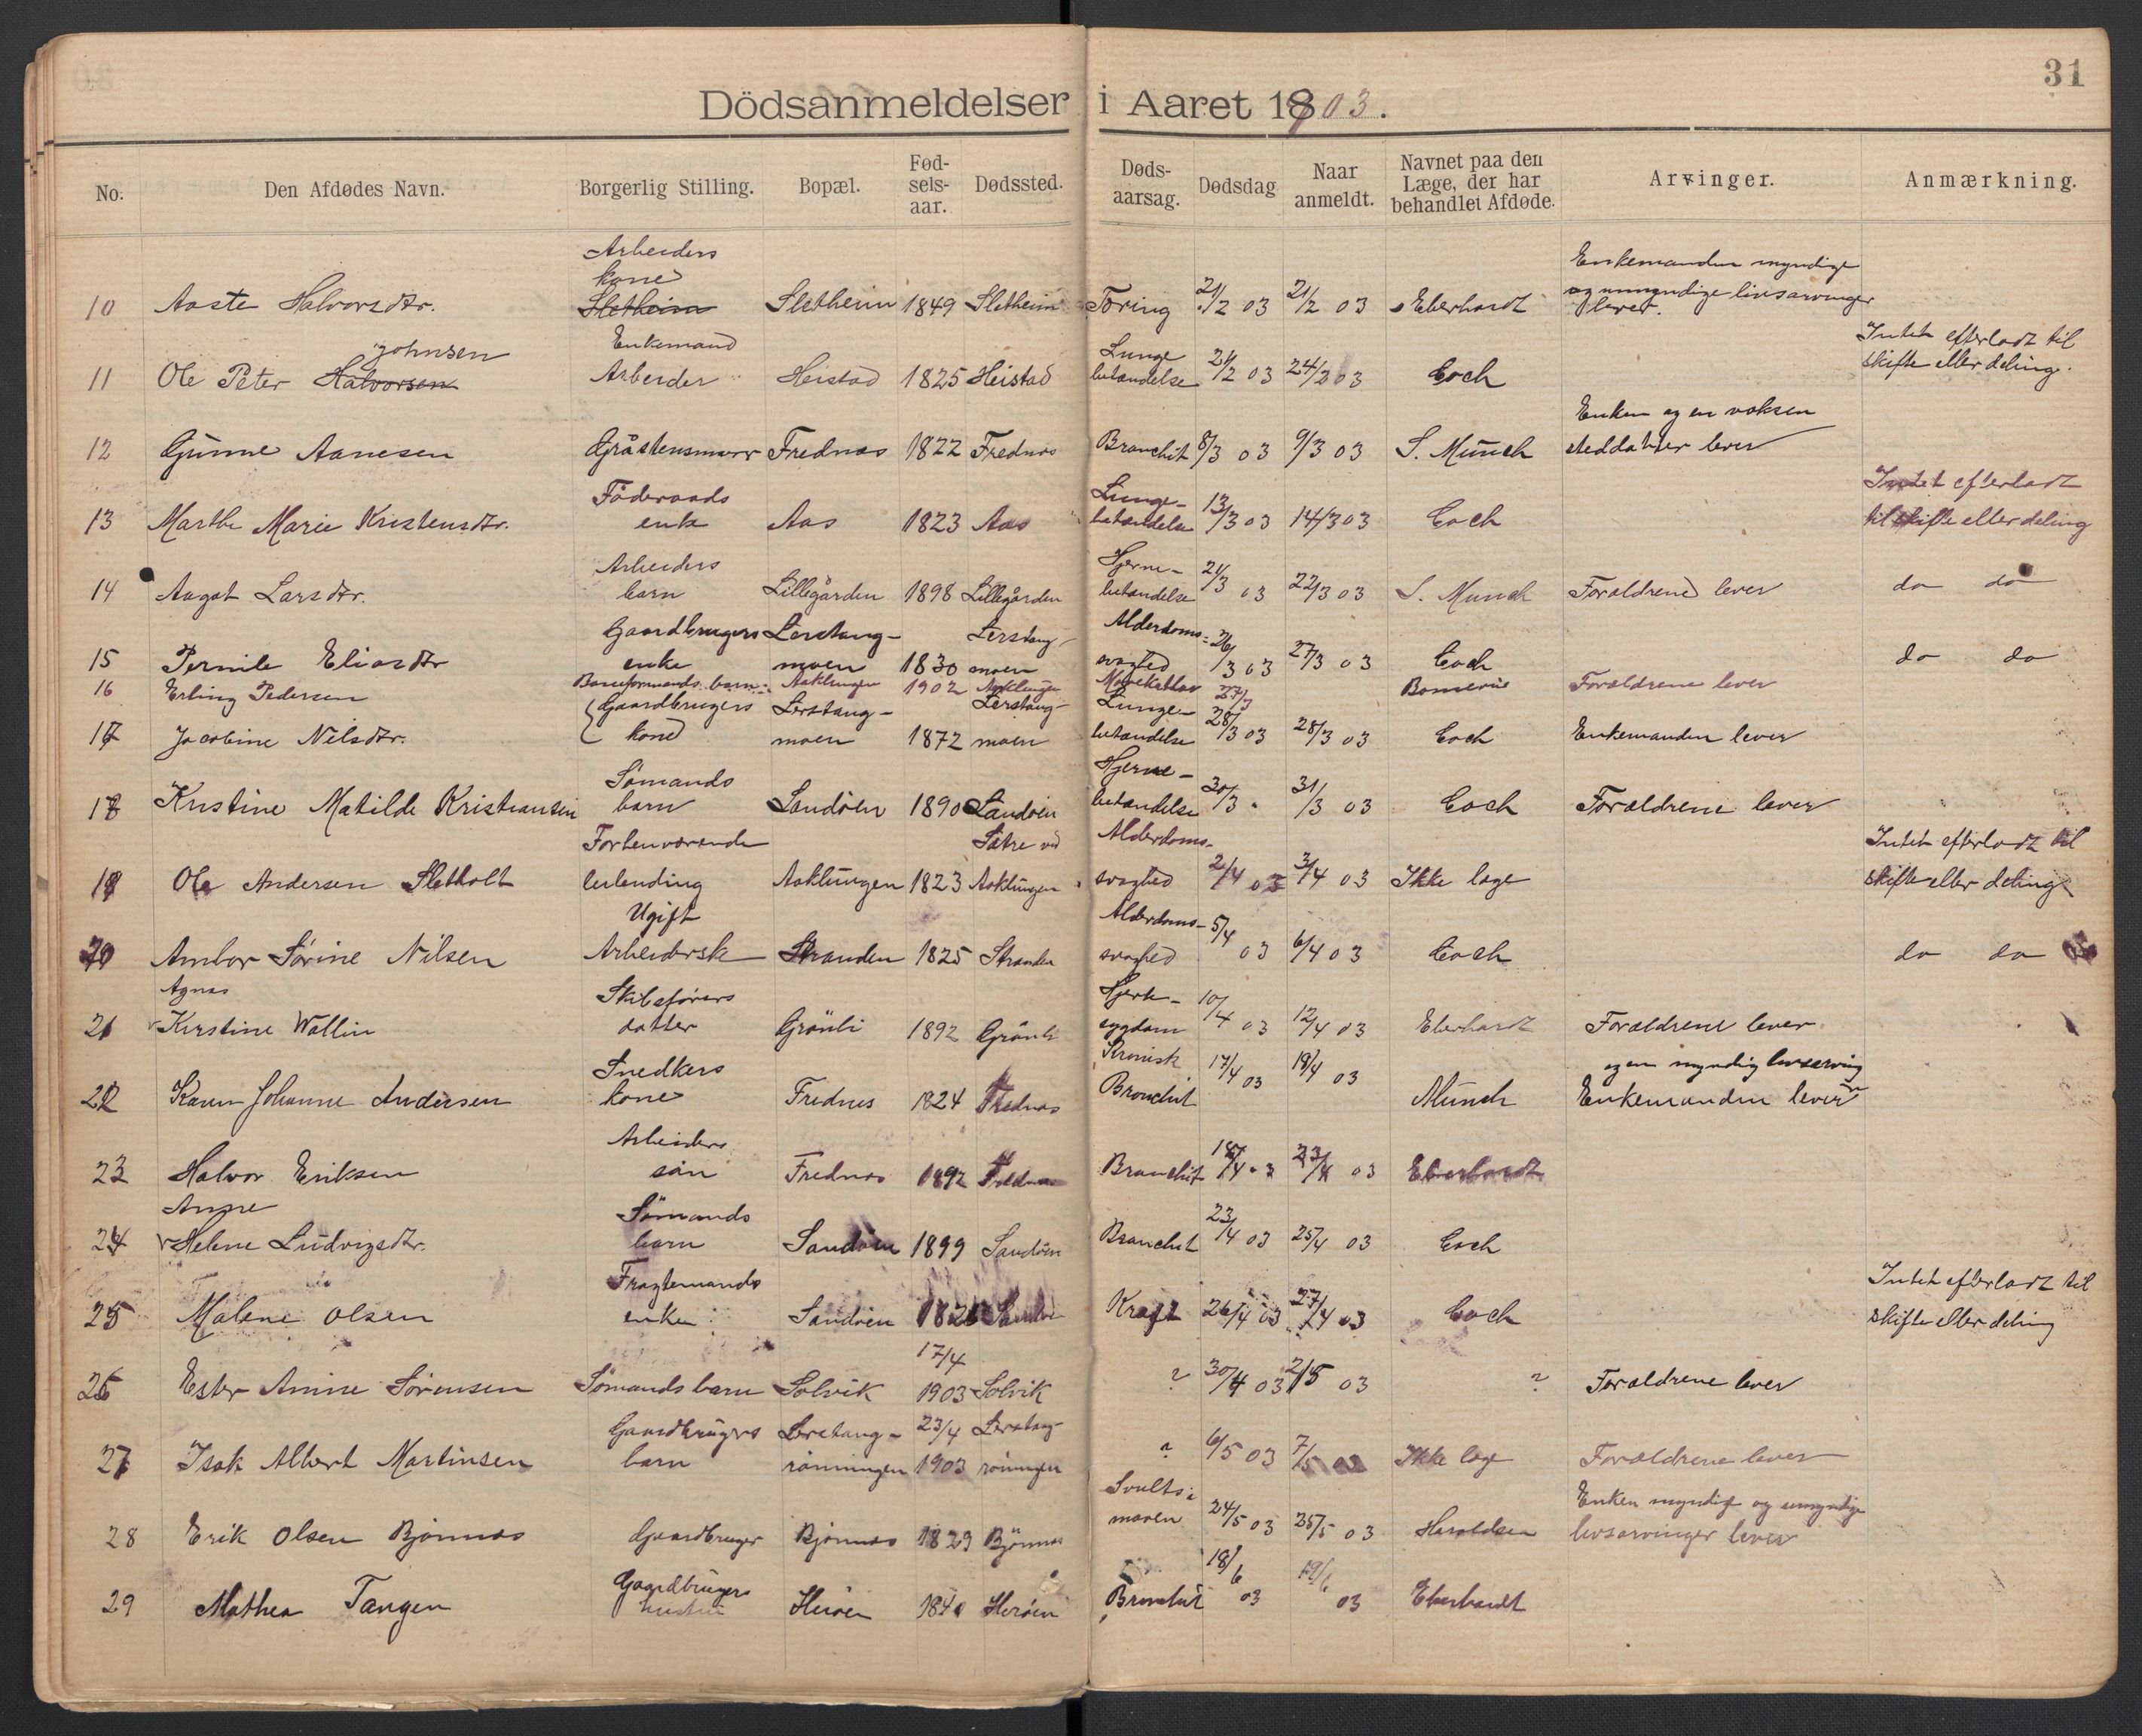 31
Dödsanmeldelser i Aaret 1903.
No. Den Afdødes Navn. Borgerlig Stilling. Bopæl. Fødselsaar. Dødssted. Dødsaarsag. Dødsdag Naar anmeldt. Navnet paa den Læge, der har behandlet Afdøde. Arvinger. Anmærkning.
Arbeiders Enkemanden myndige
kone og umyndige livsarvinger
10 Aaste Halvorsdtr. Sletheim Sletheim 1849 Sletheim Tæring 21/2 03 21/2 03 Eberhardt lever.
Johnsen Enkemand Lunge Intet efterladt til
11 Ole Peter Halvorsen Arbeider Heistad 1825 Heistad betændelse 21/2 03 24/2 03 Coch skifte eller deling.
Enken og en voksen
12 Gunne Aanesen Gråstensmurer Frednæs 1822 Frednæs Bronchit 8/3 03 9/3 03 S. Münch steddatter lever
Föderaads Lunge- Intet efterladt
13 Marthe Marie Kristensdtr. enke Aas 1823 Aas betændelse 13/3 03 14/3 03 Coch til skifte eller deling
Arbeiders Hjerne-
14 Aagot Larsdtr. barn Lillegården 1898 Lillegården betændelse 21/3 03 22/3 03 S. Münch Forældrene lever do do
Gaardbrugers Lerstang- Lerstang- Alderdoms-
15 Pernile Eliasdtr enke moen 1830 moen svaghed 26/3 03 27/3 03 Coch do do
16 Erling Pedersen barn Aaklungen 1902 Aaklungen 27/3 Forældrene lever
Gaardbrugers Lerstang- Lerstang- Lunge-
17 Jacobine Nilsdtr. kone moen 1872 moen betændelse 28/3 03 28/3 03 Coch Enkemanden lever
Sömands Hjerne-
18 Kristine Matilde Kristiansen barn Sandöen 1890 Sandöen betændelse 30/3 31/3 03 Coch Forældrene lever
Forhenværende Sätre ved Alderdoms- Intet efterladt til
19 Ole Andersen Sletholt Aaklungen 1823 Aaklungen svaghed 2/4 03 3/4 03 Ikke læge skifte eller deling
Ugift Alderdoms-
20 Ambor Sörine Nilsen Arbeiderske Stranden 1825 Stranden svaghed 5/4 03 6/4 03 Coch do do
Agnes Skibsförers Hjerte-
21 Kirstine Wallin datter Grönli 1892 Grönli sygdom 10/4 03 12/4 03 Eberhardt Forældrene lever
Snedkers Kronisk og en myndig livsarving
22 Karen Johanne Andersen kone Frednes 1824 Frednæs Bronchit 17/4 03 18/4 03 Münch Enkemanden lever
Arbeiders
23 Halvor Eriksen sön Frednæs 1892 Frednæs Bronchit 18/4 03 23/4 03 Eberhardt
Anne Sömands
24 Helene Ludvigsdtr. barn Sandöen 1899 Sandöen Bronchit 23/4 03 25/4 03 Coch
Fragtemands Intet efterladt til
25 Malene Olsen enke Sandöen Sandöen Kræft 26/4 03 27/4 03 Coch skifte eller deling
17/4
26 Ester Amine Sörensen Sömands barn Solvik 1903 Solvik ? 30/4 03 2/5 03 ? Forældrene lever
Gaardbrugers Lerstang- 23/4 Lerstang-
27 Isak Albert Martinsen barn rönningen 1903 rönningen ? 6/5 03 7/5 Ikke læge Forældrene lever
Svulst i Enken myndige og umyndige
28 Erik Olsen Bjönnæs Gaardbruger Bjönnæs 1829 Bjönnæs maven 24/5 03 25/5 03 Haraldsen livsarvinger lever
Gaardbrugers
29 Mathea Tangen hustru Heröen Heröen Bronchit 18/6 03 19/6 03 Eberhardt